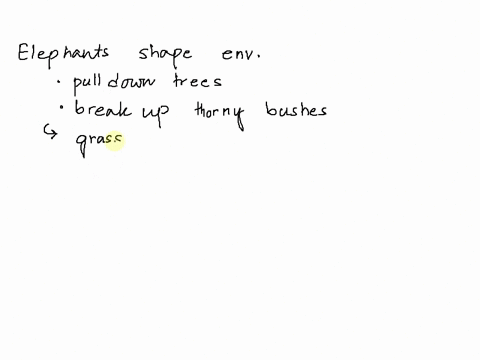 Elephants shape env.
· pull down trees
· break up thorny bushes
↳ grass